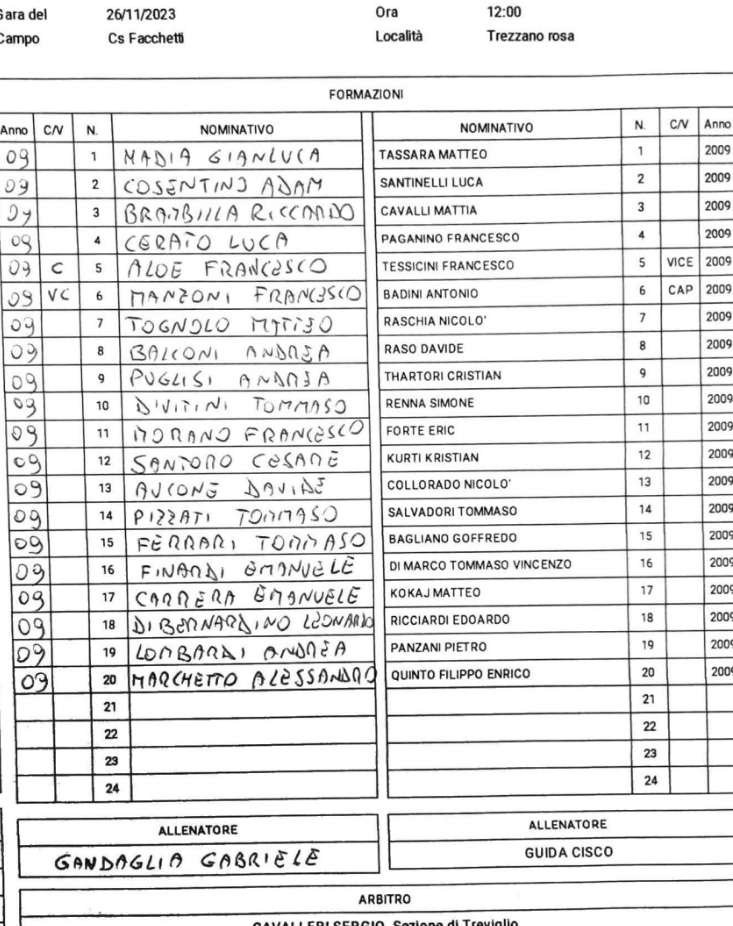 Gara del 26/11/2023 Ora 12:00
Campo Cs Facchetti Località Trezzano rosa
FORMAZIONI
Anno C/V N. NOMINATIVO NOMINATIVO N. C/V Anno
09 1 MADIA GIANLUCA TASSARA MATTEO 1 2009
09 2 COSENTINO ADAM SANTINELLI LUCA 2 2009
09 3 BRAMBILLA RICCARDO CAVALLI MATTIA 3 2009
09 4 CERATO LUCA PAGANINO FRANCESCO 4 2009
09 C 5 ALOE FRANCESCO TESSICINI FRANCESCO 5 VICE 2009
09 VC 6 MANZONI FRANCESCO BADINI ANTONIO 6 CAP 2009
09 7 TOGNOLO MATTEO RASCHIA NICOLO' 7 2009
09 8 BALCONI ANDREA RASO DAVIDE 8 2009
09 9 PUGLISI ANDREA THARTORI CRISTIAN 9 2009
09 10 DIVITINI TOMMASO RENNA SIMONE 10 2009
09 11 MORANO FRANCESCO FORTE ERIC 11 2009
09 12 SANTORO CESARE KURTI KRISTIAN 12 2009
09 13 AUCONE DAVIDE COLLORADO NICOLO' 13 2009
09 14 PIZZATI TOMMASO SALVADORI TOMMASO 14 2009
09 15 FERRARI TOMMASO BAGLIANO GOFFREDO 15 2009
09 16 FINARDI EMANUELE DI MARCO TOMMASO VINCENZO 16 2009
09 17 CARRERA EMANUELE KOKAJ MATTEO 17 2009
09 18 DI BERNARDINO LEONARDO RICCIARDI EDOARDO 18 2009
09 19 LOMBARDI ANDREA PANZANI PIETRO 19 2009
09 20 MARCHETTO ALESSANDRO QUINTO FILIPPO ENRICO 20 2009
21 21
22 22
23 23
24 24
ALLENATORE ALLENATORE
GANDAGLIA GABRIELE GUIDA CISCO
ARBITRO
CAVALLERI SERGIO Sezione di Treviglio